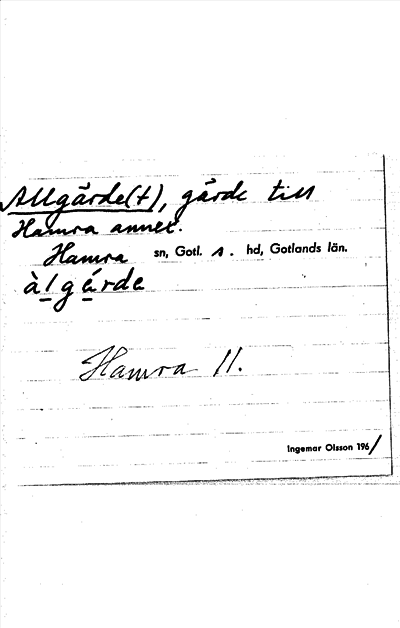 Allgårde(t), gårde till
Hamra annex.
Hamra sn, Gotl. S. hd, Gotlands län.
àlgårde
Hamra 11.
Ingemar Olsson 196/